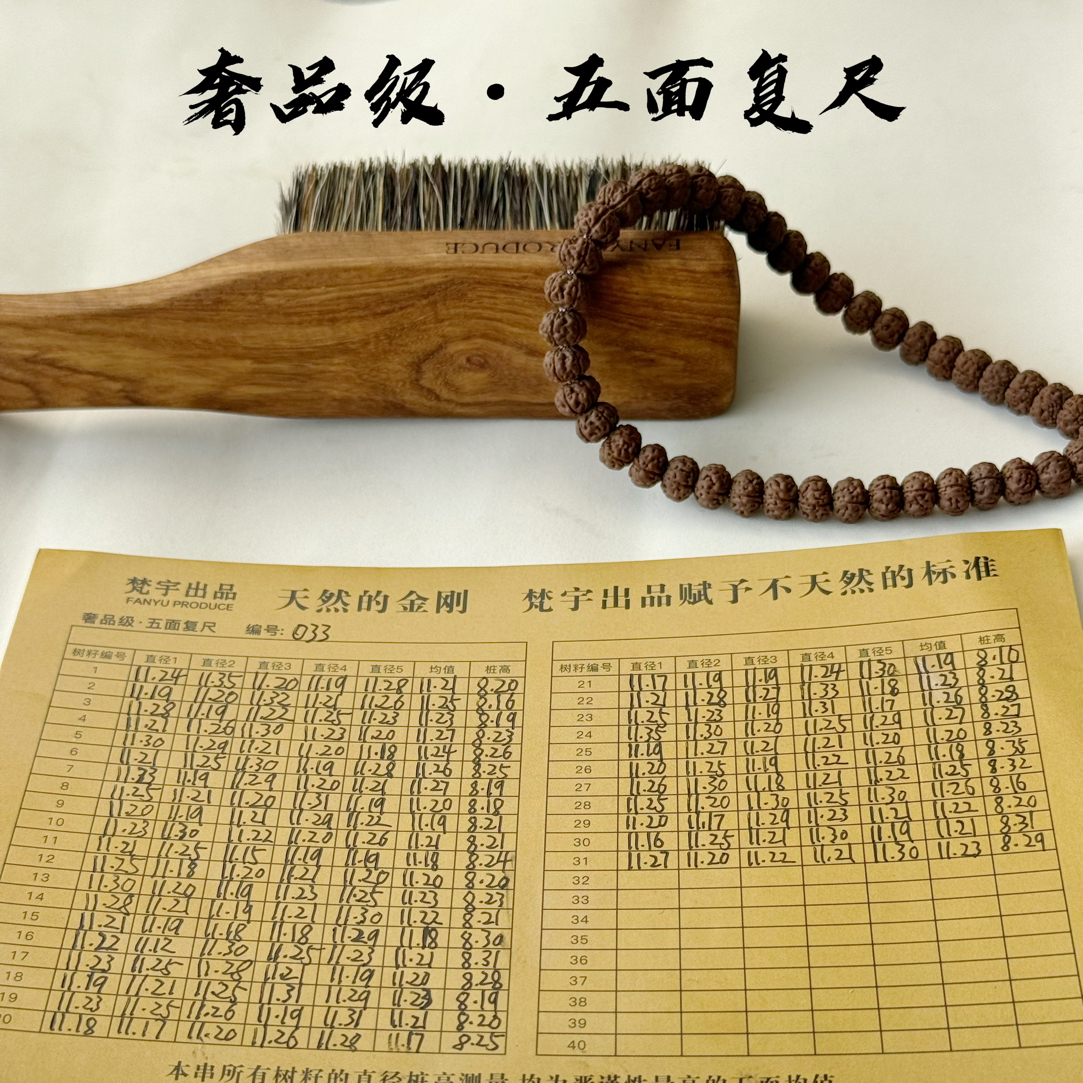 奢品级·五面复尺
FANY RODUCE
梵宇出品
FANYU PRODUCE
天然的金刚 梵宇出品赋予不天然的标准
奢品级·五面复尺 编号: 033
树籽编号 直径1 直径2 直径3 直径4 直径5 均值 桩高
1 11.24 11.35 11.20 11.19 11.28 11.21 8.20
2 11.19 11.20 11.32 11.21 11.26 11.25 8.16
3 11.28 11.19 11.22 11.25 11.23 11.23 8.19
4 11.21 11.26 11.30 11.23 11.20 11.27 8.23
5 11.30 11.29 11.21 11.20 11.18 11.24 8.26
6 11.21 11.25 11.30 11.19 11.28 11.26 8.25
7 11.33 11.19 11.29 11.20 11.21 11.27 8.19
8 11.25 11.21 11.20 11.31 11.19 11.20 8.18
9 11.20 11.19 11.21 11.29 11.22 11.19 8.21
10 11.23 11.30 11.22 11.20 11.26 11.21 8.21
11 11.21 11.25 11.15 11.19 11.19 11.18 8.24
12 11.25 11.18 11.20 11.27 11.20 11.20 8.20
13 11.30 11.20 11.19 11.23 11.25 11.23 8.23
14 11.28 11.21 11.19 11.21 11.30 11.22 8.21
15 11.21 11.19 11.18 11.18 11.29 11.18 8.30
16 11.22 11.12 11.30 11.25 11.23 11.21 8.31
17 11.23 11.25 11.28 11.21 11.19 11.20 8.28
18 11.19 11.21 11.25 11.31 11.29 11.23 8.19
19 11.23 11.25 11.26 11.19 11.31 11.21 8.20
20 11.18 11.17 11.20 11.26 11.28 11.17 8.25
树籽编号 直径1 直径2 直径3 直径4 直径5 均值 桩高
21 11.17 11.19 11.19 11.24 11.30 11.19 8.10
22 11.21 11.28 11.27 11.33 11.18 11.23 8.21
23 11.25 11.23 11.19 11.31 11.17 11.26 8.28
24 11.35 11.30 11.20 11.25 11.29 11.27 8.27
25 11.19 11.27 11.21 11.21 11.20 11.20 8.23
26 11.20 11.25 11.19 11.22 11.26 11.18 8.35
27 11.26 11.30 11.18 11.21 11.22 11.25 8.32
28 11.25 11.20 11.30 11.25 11.30 11.26 8.16
29 11.20 11.17 11.29 11.23 11.21 11.22 8.20
30 11.16 11.25 11.21 11.30 11.19 11.21 8.31
31 11.27 11.20 11.22 11.21 11.30 11.23 8.29
32
33
34
35
36
37
38
39
40
本串所有树籽的直径桩高测量,均为严谨性最高的五面均值